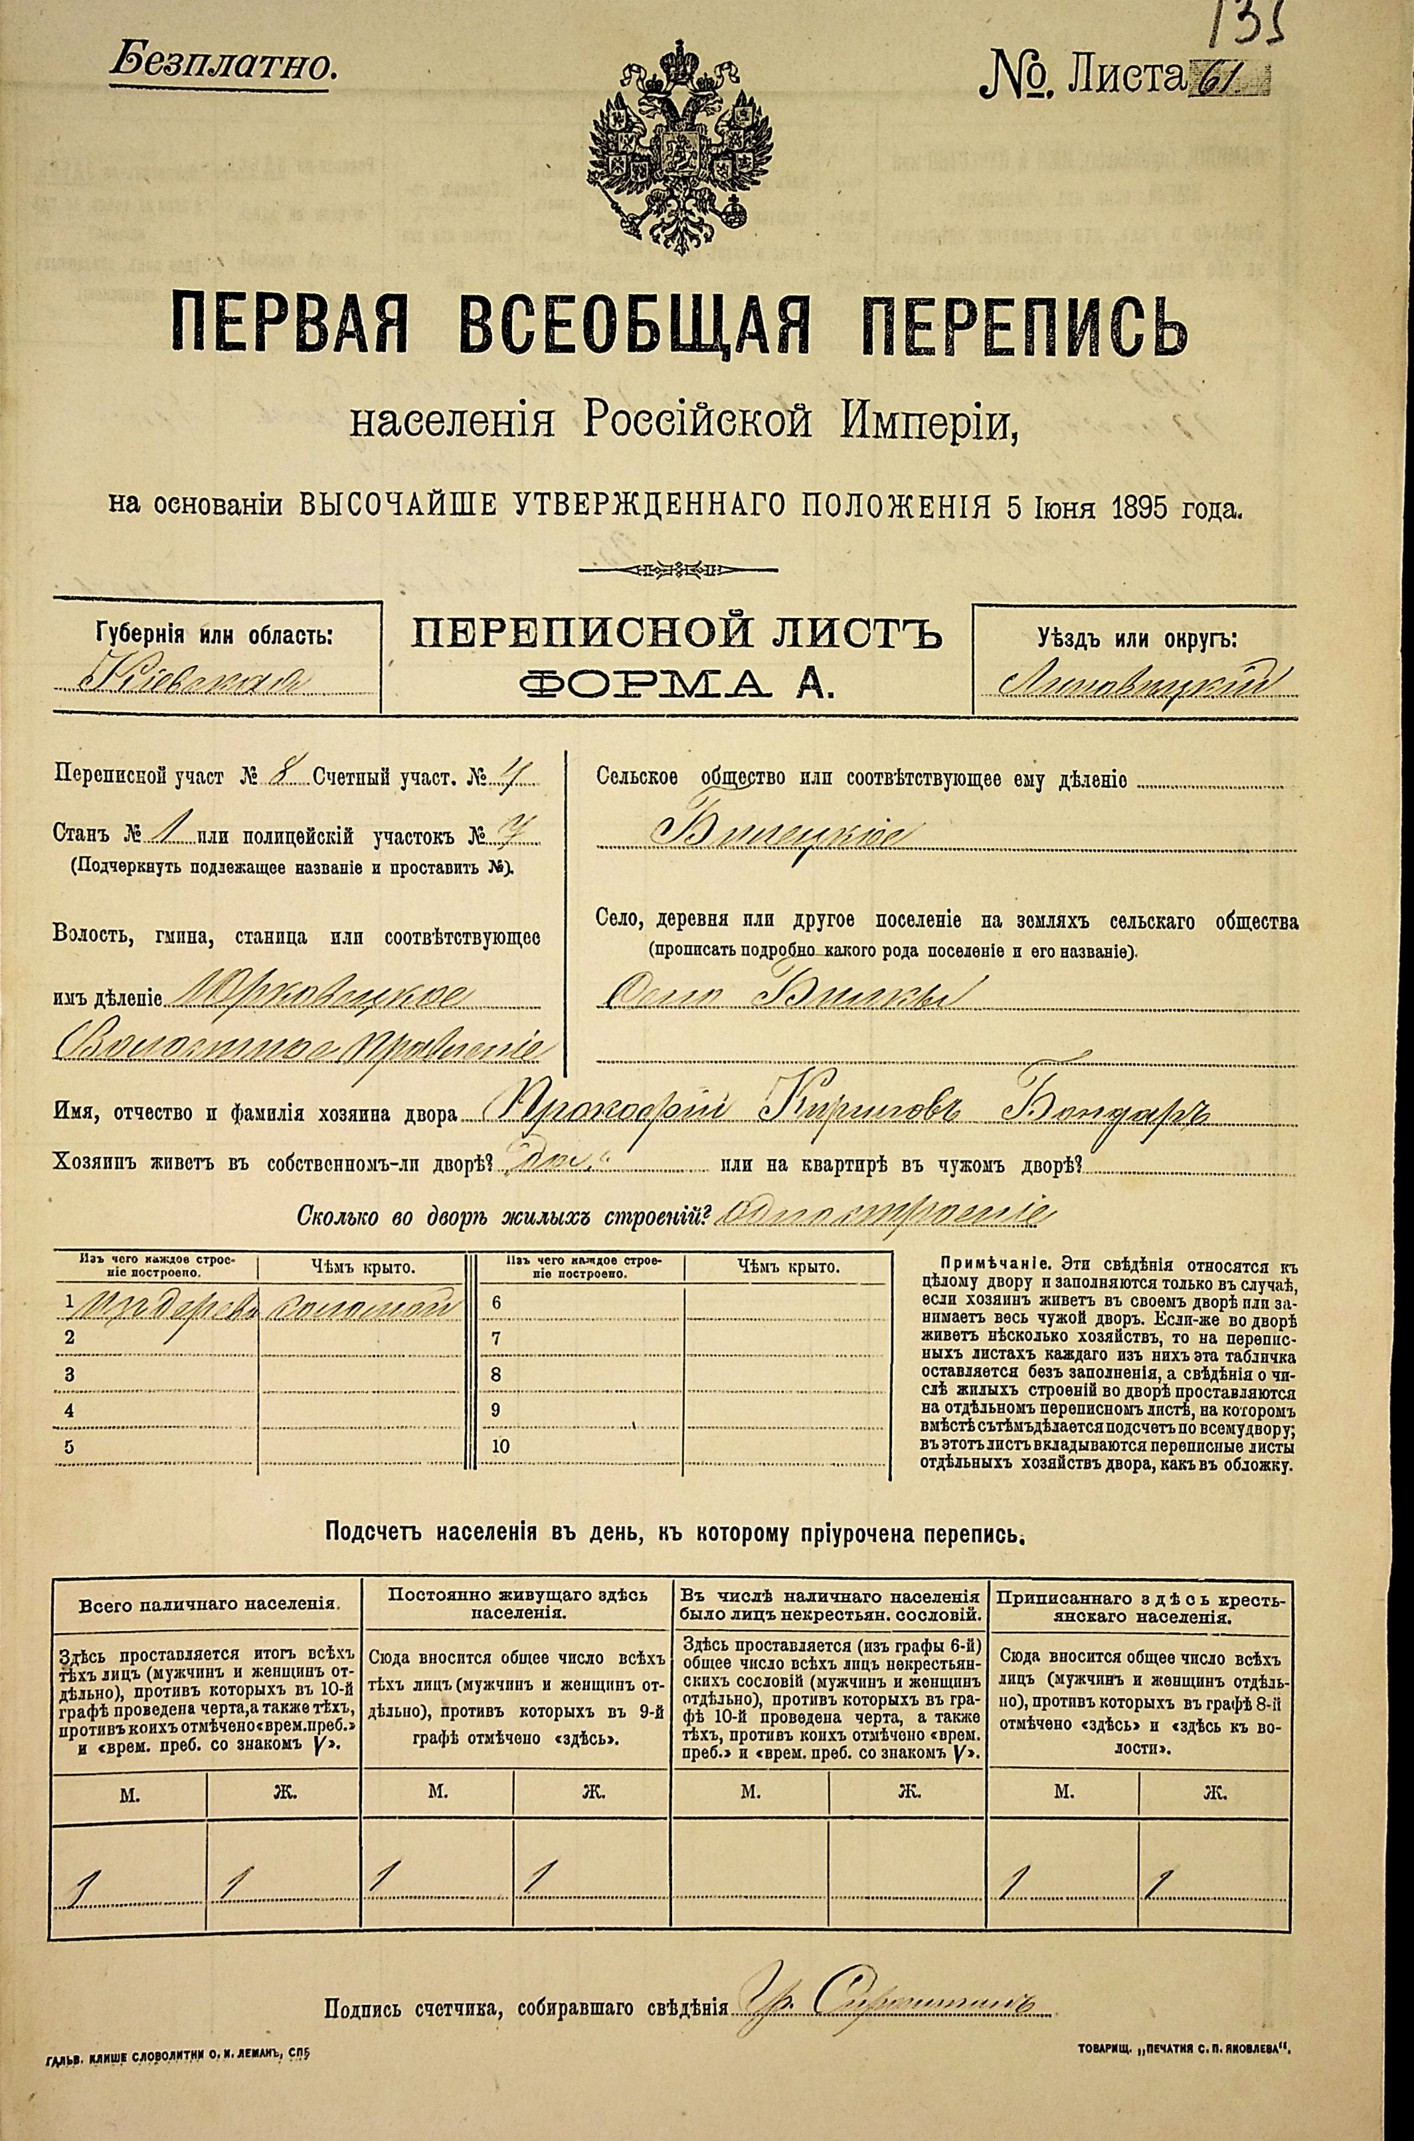 135
Безплатно.
№. Листа 61
ПЕРВАЯ ВСЕОБЩАЯ ПЕРЕПИСЬ
населенія Россійской Имперіи,
на основаніи ВЫСОЧАЙШЕ УТВЕРЖДЕННАГО ПОЛОЖЕНІЯ 5 Іюня 1895 года.
Губернія или область:
Кіевская
ПЕРЕПИСНОЙ ЛИСТЪ
ФОРМА А.
Уѣздъ или округъ:
Липовецкій
Переписной участ № 8 Счетный участ. № 4
Станъ № 1 или полицейскій участокъ №
(Подчеркнуть подлежащее названіе и проставить №).
Волость, гмина, станица или соотвѣтствующее
имъ дѣленіе Юрковецкое
Волостное правленіе
Сельское общество или соотвѣтствующее ему дѣленіе
Билецкіе
Село, деревня или другое поселеніе на земляхъ сельскаго общества
(прописать подробно какого рода поселеніе и его названіе).
Село Билки
Имя, отчество и фамилія хозяина двора Прокофій Кириловъ Бондаръ
Хозяинъ живетъ въ собственномъ-ли дворѣ? или на квартирѣ въ чужомъ дворѣ?
Сколько во дворѣ жилыхъ строеній? одно строеніе
Изъ чего каждое строе-
ніе построено.
Чѣмъ крыто.
1 изъ дерева соломой
2
3
4
5
Изъ чего каждое строе-
ніе построено.
Чѣмъ крыто.
6
7
8
9
10
Примѣчаніе. Эти свѣдѣнія относятся къ
цѣлому двору и заполняются только въ случаѣ,
если хозяинъ живетъ въ своемъ дворѣ или за-
нимаетъ весь чужой дворъ. Если-же во дворѣ
живетъ нѣсколько хозяйствъ, то на перепис-
ныхъ листахъ каждаго изъ нихъ эта табличка
оставляется безъ заполненія, а свѣдѣнія о чи-
слѣ жилыхъ строеній во дворѣ проставляются
на отдѣльномъ переписномъ листѣ, на которомъ
вмѣстѣ сътѣмъ дѣлается подсчетъ по всему двору;
въ этотъ листъ вкладываются переписные листы
отдѣльныхъ хозяйствъ двора, какъ въ обложку.
Подсчетъ населенія въ день, къ которому пріурочена перепись.
Всего наличнаго населенія.
Здѣсь проставляется итогъ всѣхъ
тѣхъ лицъ (мужчинъ и женщинъ от-
дѣльно), противъ которыхъ въ 10-й
графѣ проведена черта, а также тѣхъ,
противъ коихъ отмѣчено «врем. преб.»
и «врем. преб. со знакомъ V».
М. Ж.
1 1
Постоянно живущаго здѣсь
населенія.
Сюда вносится общее число всѣхъ
тѣхъ лицъ (мужчинъ и женщинъ от-
дѣльно), противъ которыхъ въ 9-й
графѣ отмѣчено «здѣсь».
М. Ж.
1 1
Въ числѣ наличнаго населенія
было лицъ некрестьян. сословій.
Здѣсь проставляется (изъ графы 6-й)
общее число всѣхъ лицъ некрестьян-
скихъ сословій (мужчинъ и женщинъ
отдѣльно), противъ которыхъ въ гра-
фѣ 10-й проведена черта, а также
тѣхъ, противъ коихъ отмѣчено «врем.
преб.» и «врем. преб. со знакомъ V».
М. Ж.
Приписаннаго здѣсь кресть-
янскаго населенія.
Сюда вносится общее число всѣхъ
лицъ (мужчинъ и женщинъ отдѣль-
но), противъ которыхъ въ графѣ 8-й
отмѣчено «здѣсь» и «здѣсь къ во-
лости».
М. Ж.
1 1
Подпись счетчика, собиравшаго свѣдѣнія Гр.
ГАЛЬВ. КЛИШЕ СЛОВОЛИТНИ О. И. ЛЕМАНЪ, СПБ
ТОВАРИЩ. „ПЕЧАТНЯ С. П. ЯКОВЛЕВА“.